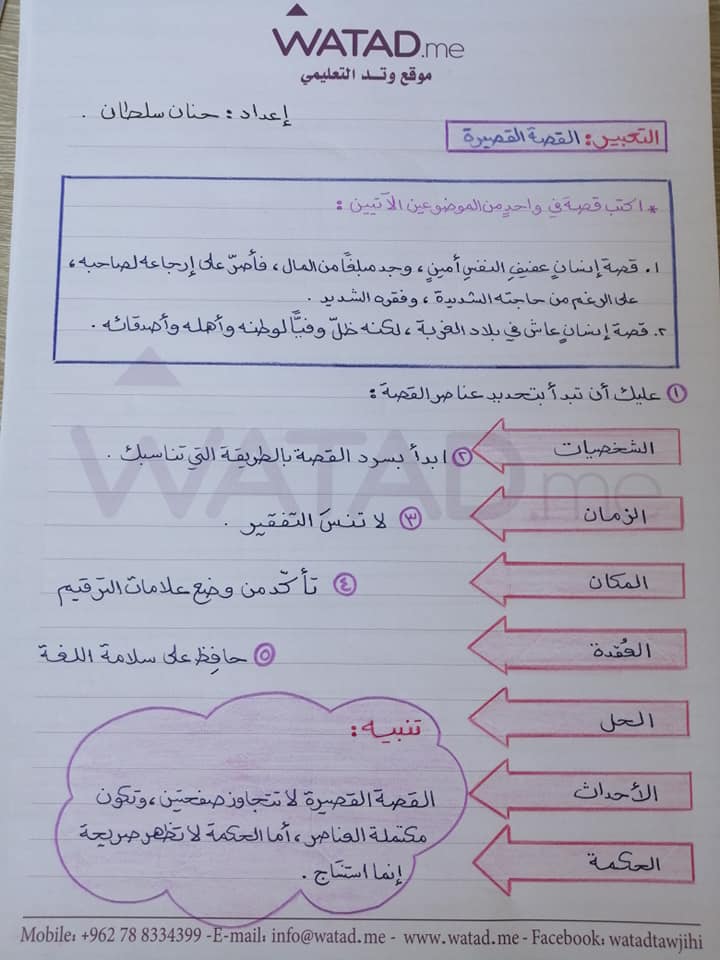 WATAD.me
موقع وتد التعليمي
إعداد : حنان سلطان .
التعبير: القصة القصيرة
* اكتب قصة في واحدٍ من الموضوعين الآتيين :
١. قصة إنسانٍ عفيفِ النفسِ أمينٍ ، وجد مبلغًا من المال ، فأصرّ على إرجاعه لصاحبه ،
على الرغم من حاجته الشديدة ، وفقره الشديد .
٢. قصة إنسانٍ عاش في بلاد الغربة ، لكنه ظلّ وفيًّا لوطنه وأهله وأصدقائه .
① عليك أن تبدأ بتحديد عناصر القصة :
الشخصيات
② ابدأ بسرد القصة بالطريقة التي تناسبك .
WATAD.me
الزمان
③ لا تنسَ التفقير .
المكان
④ تأكّد من وضع علامات الترقيم
العُقدة
⑤ حافِظ على سلامة اللغة
الحل
تنبيه :
الأحداث
القصة القصيرة لا تتجاوز صفحتين ، وتكون
مكتملة العناصر ، أما الحكمة لا تظهر صريحة
الحكمة
إنما استنتاج .
Mobile: +962 78 8334399 -E-mail: info@watad.me - www.watad.me - Facebook: watadtawjihi